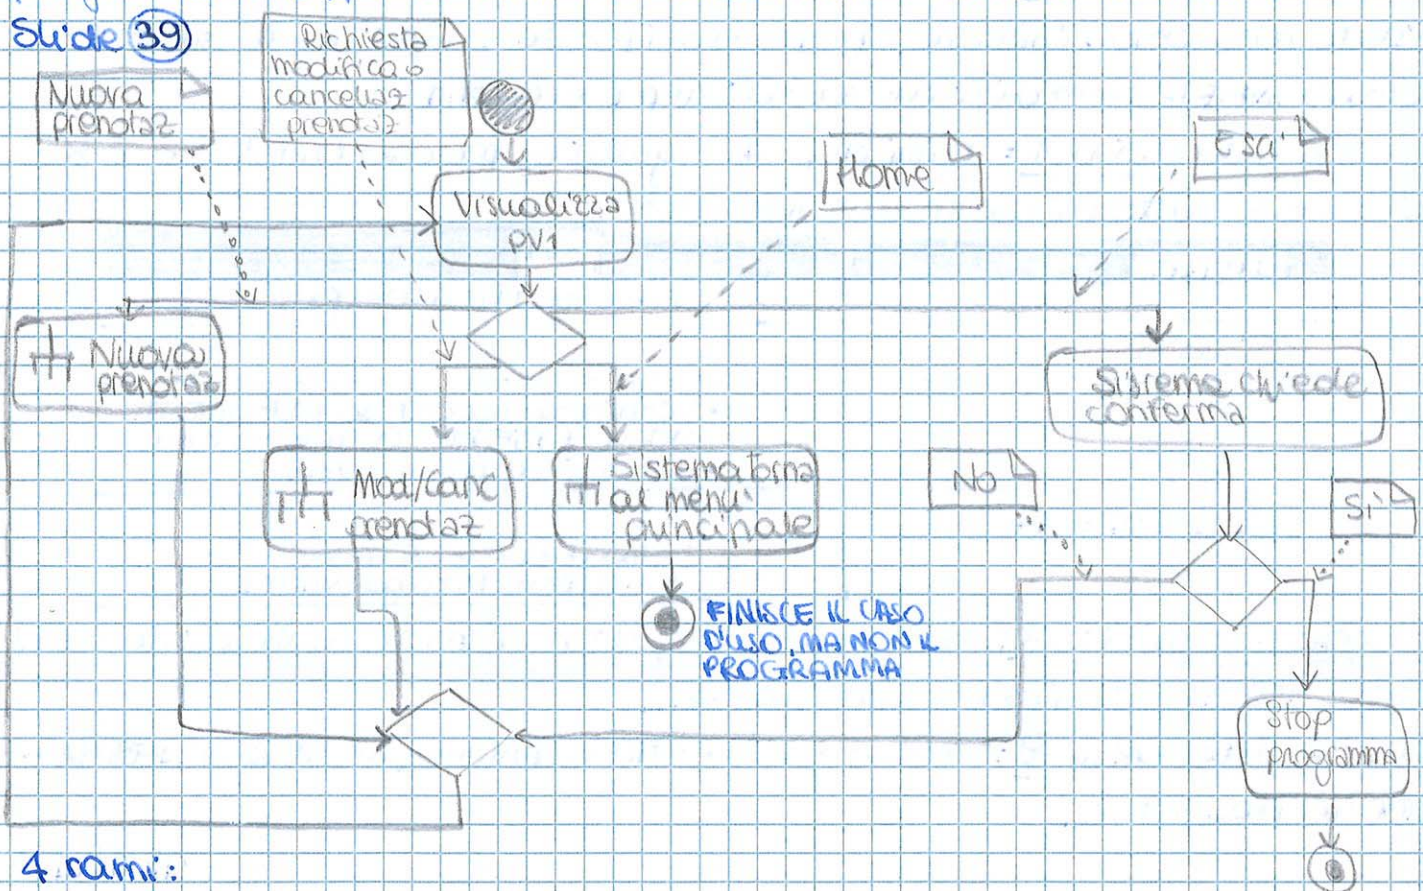 Slide 39
Nuova
prenotaz
Richiesta
modifica o
cancellaz
prenotaz
Home
Esci
Visualizza
PV1
Nuova
prenotaz
Sistema chiede
conferma
Mod/Canc
prenotaz
Sistema torna
al menu'
principale
No
Sì
FINISCE IL CASO
D'USO, MA NON IL
PROGRAMMA
Stop
programma
4 rami: